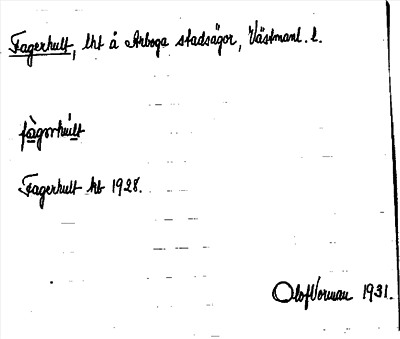 Fagerhult, lht å Arboga stadsägor, Västmanl. l.
fàgərhúlt
Fagerhult hb 1928.
Olof Vorman 1931.